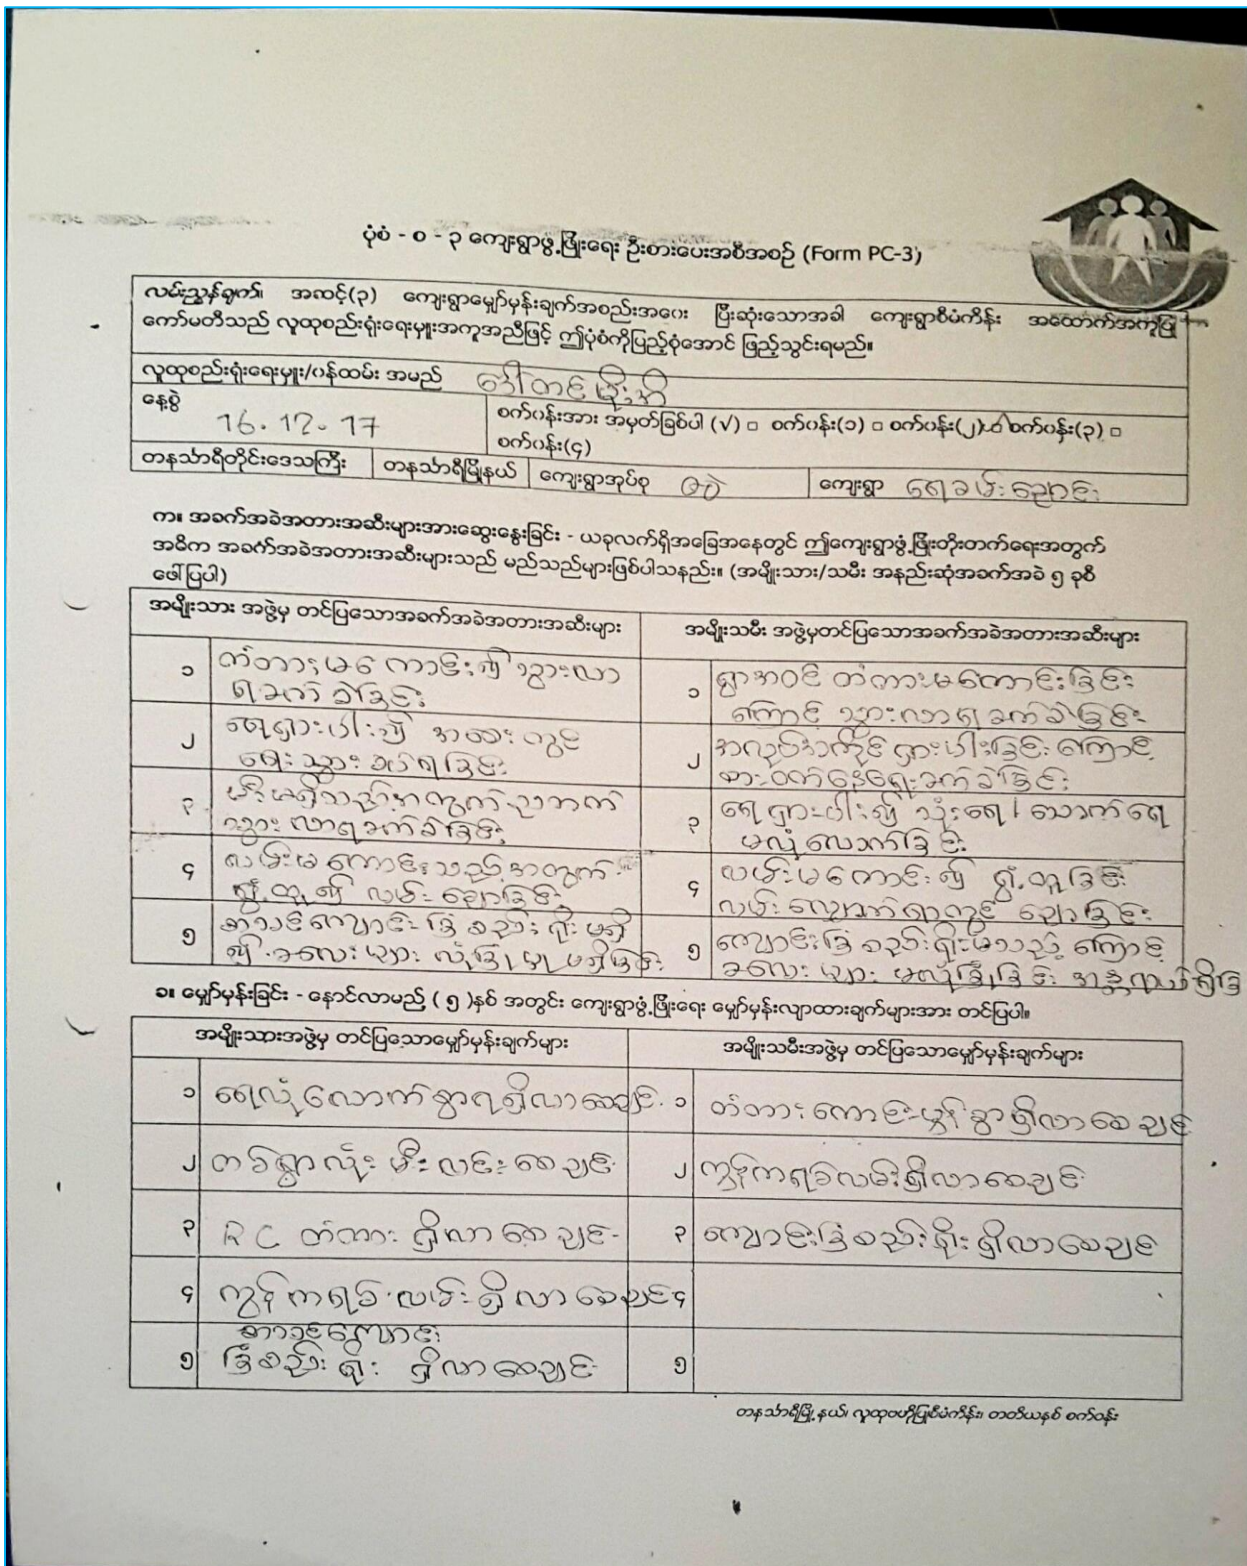 ပုံစံ - စ - ၃ ကျေးရွာဖွံ့ဖြိုးရေး ဦးစားပေးအစီအစဉ် (Form PC-3)
လမ်းညွှန်ချက်။ အဆင့်(၃) ကျေးရွာမျှော်မှန်းချက်အစည်းအဝေး ပြီးဆုံးသောအခါ ကျေးရွာစီမံကိန်း အထောက်အကူပြု
ကော်မတီသည် လူထုစည်းရုံးရေးမှူးအကူအညီဖြင့် ဤပုံစံကိုပြည့်စုံအောင် ဖြည့်သွင်းရမည်။
လူထုစည်းရုံးရေးမှူး/ဝန်ထမ်း အမည် ဒေါ်တင်မိုး
နေ့စွဲ 16.12.17 စက်ဝန်းအား အမှတ်ခြစ်ပါ (√) □ စက်ဝန်း(၁) □ စက်ဝန်း(၂) စက်ဝန်း(၃) □
စက်ဝန်း(၄)
တနင်္သာရီတိုင်းဒေသကြီး တနင်္သာရီမြို့နယ် ကျေးရွာအုပ်စု ကျေးရွာ ရေခမ်းချောင်း
က။ အခက်အခဲအတားအဆီးများအားဆွေးနွေးခြင်း - ယခုလက်ရှိအခြေအနေတွင် ဤကျေးရွာဖွံ့ဖြိုးတိုးတက်ရေးအတွက်
အဓိက အခက်အခဲအတားအဆီးများသည် မည်သည်များဖြစ်ပါသနည်း။ (အမျိုးသား/သမီး အနည်းဆုံအခက်အခဲ ၅ ခုစီ
ဖေါ်ပြပါ)
အမျိုးသား အဖွဲ့မှ တင်ပြသောအခက်အခဲအတားအဆီးများ အမျိုးသမီး အဖွဲ့မှတင်ပြသောအခက်အခဲအတားအဆီးများ
၁ တံတားမကောင်း၍ သွားလာ
ရခက်ခဲခြင်း
၁ ရွာအဝင် တံတားမကောင်းခြင်း
ကြောင့် သွားလာရခက်ခဲခြင်း
၂ ရေရှားပါး၍ အဝေးတွင်
ရေးသွားခပ်ရခြင်း
၂ အလုပ်အကိုင်ရှားပါးခြင်းကြောင့်
စားဝတ်နေရေးခက်ခဲခြင်း
၃ မီးမရှိသည့်အတွက် ညဘက်
သွားလာရခက်ခဲခြင်း
၃ ရေရှားပါး၍ သုံးရေ၊ သောက်ရေ
မလုံလောက်ခြင်း
၄ လမ်းမကောင်းသည့်အတွက်
ရွှံ့ထူ၍ လမ်းချောခြင်း
၄ လမ်းမကောင်း၍ ရွှံ့ထူခြင်း
လမ်းလျှောက်ရာတွင် ချောခြင်း
၅ စာသင်ကျောင်း ခြံစည်းရိုး မရှိ
၍ ခလေးများ လုံခြုံမှုမရှိခြင်း
၅ ကျောင်းခြံစည်းရိုးမသည့်ကြောင့်
ခလေးများ မလုံခြုံခြင်း အန္တရာယ်ရှိခြ
ခ။ မျှော်မှန်းခြင်း - နောင်လာမည့် ( ၅ )နှစ် အတွင်း ကျေးရွာဖွံ့ဖြိုးရေး မျှော်မှန်းလျာထားချက်များအား တင်ပြပါ။
အမျိုးသားအဖွဲ့မှ တင်ပြသောမျှော်မှန်းချက်များ အမျိုးသမီးအဖွဲ့မှ တင်ပြသောမျှော်မှန်းချက်များ
၁ ရေလုံလောက်စွာရရှိလာစေချင် ၁ တံတားကောင်းမွန်စွာရှိလာစေချင်
၂ တစ်ရွာလုံး မီးလင်းစေချင် ၂ ကွန်ကရစ်လမ်းရှိလာစေချင်
၃ RC တံတား ရှိလာစေချင် ၃ ကျောင်းခြံစည်းရိုးရှိလာစေချင်
၄ ကွန်ကရစ်လမ်းရှိလာစေချင် ၄
စာသင်ကျောင်း
၅ ခြံစည်းရိုး ရှိလာစေချင် ၅
တနင်္သာရီမြို့နယ်၊ လူထုဗဟိုပြုစီမံကိန်း၊ တတိယနှစ် စက်ဝန်း